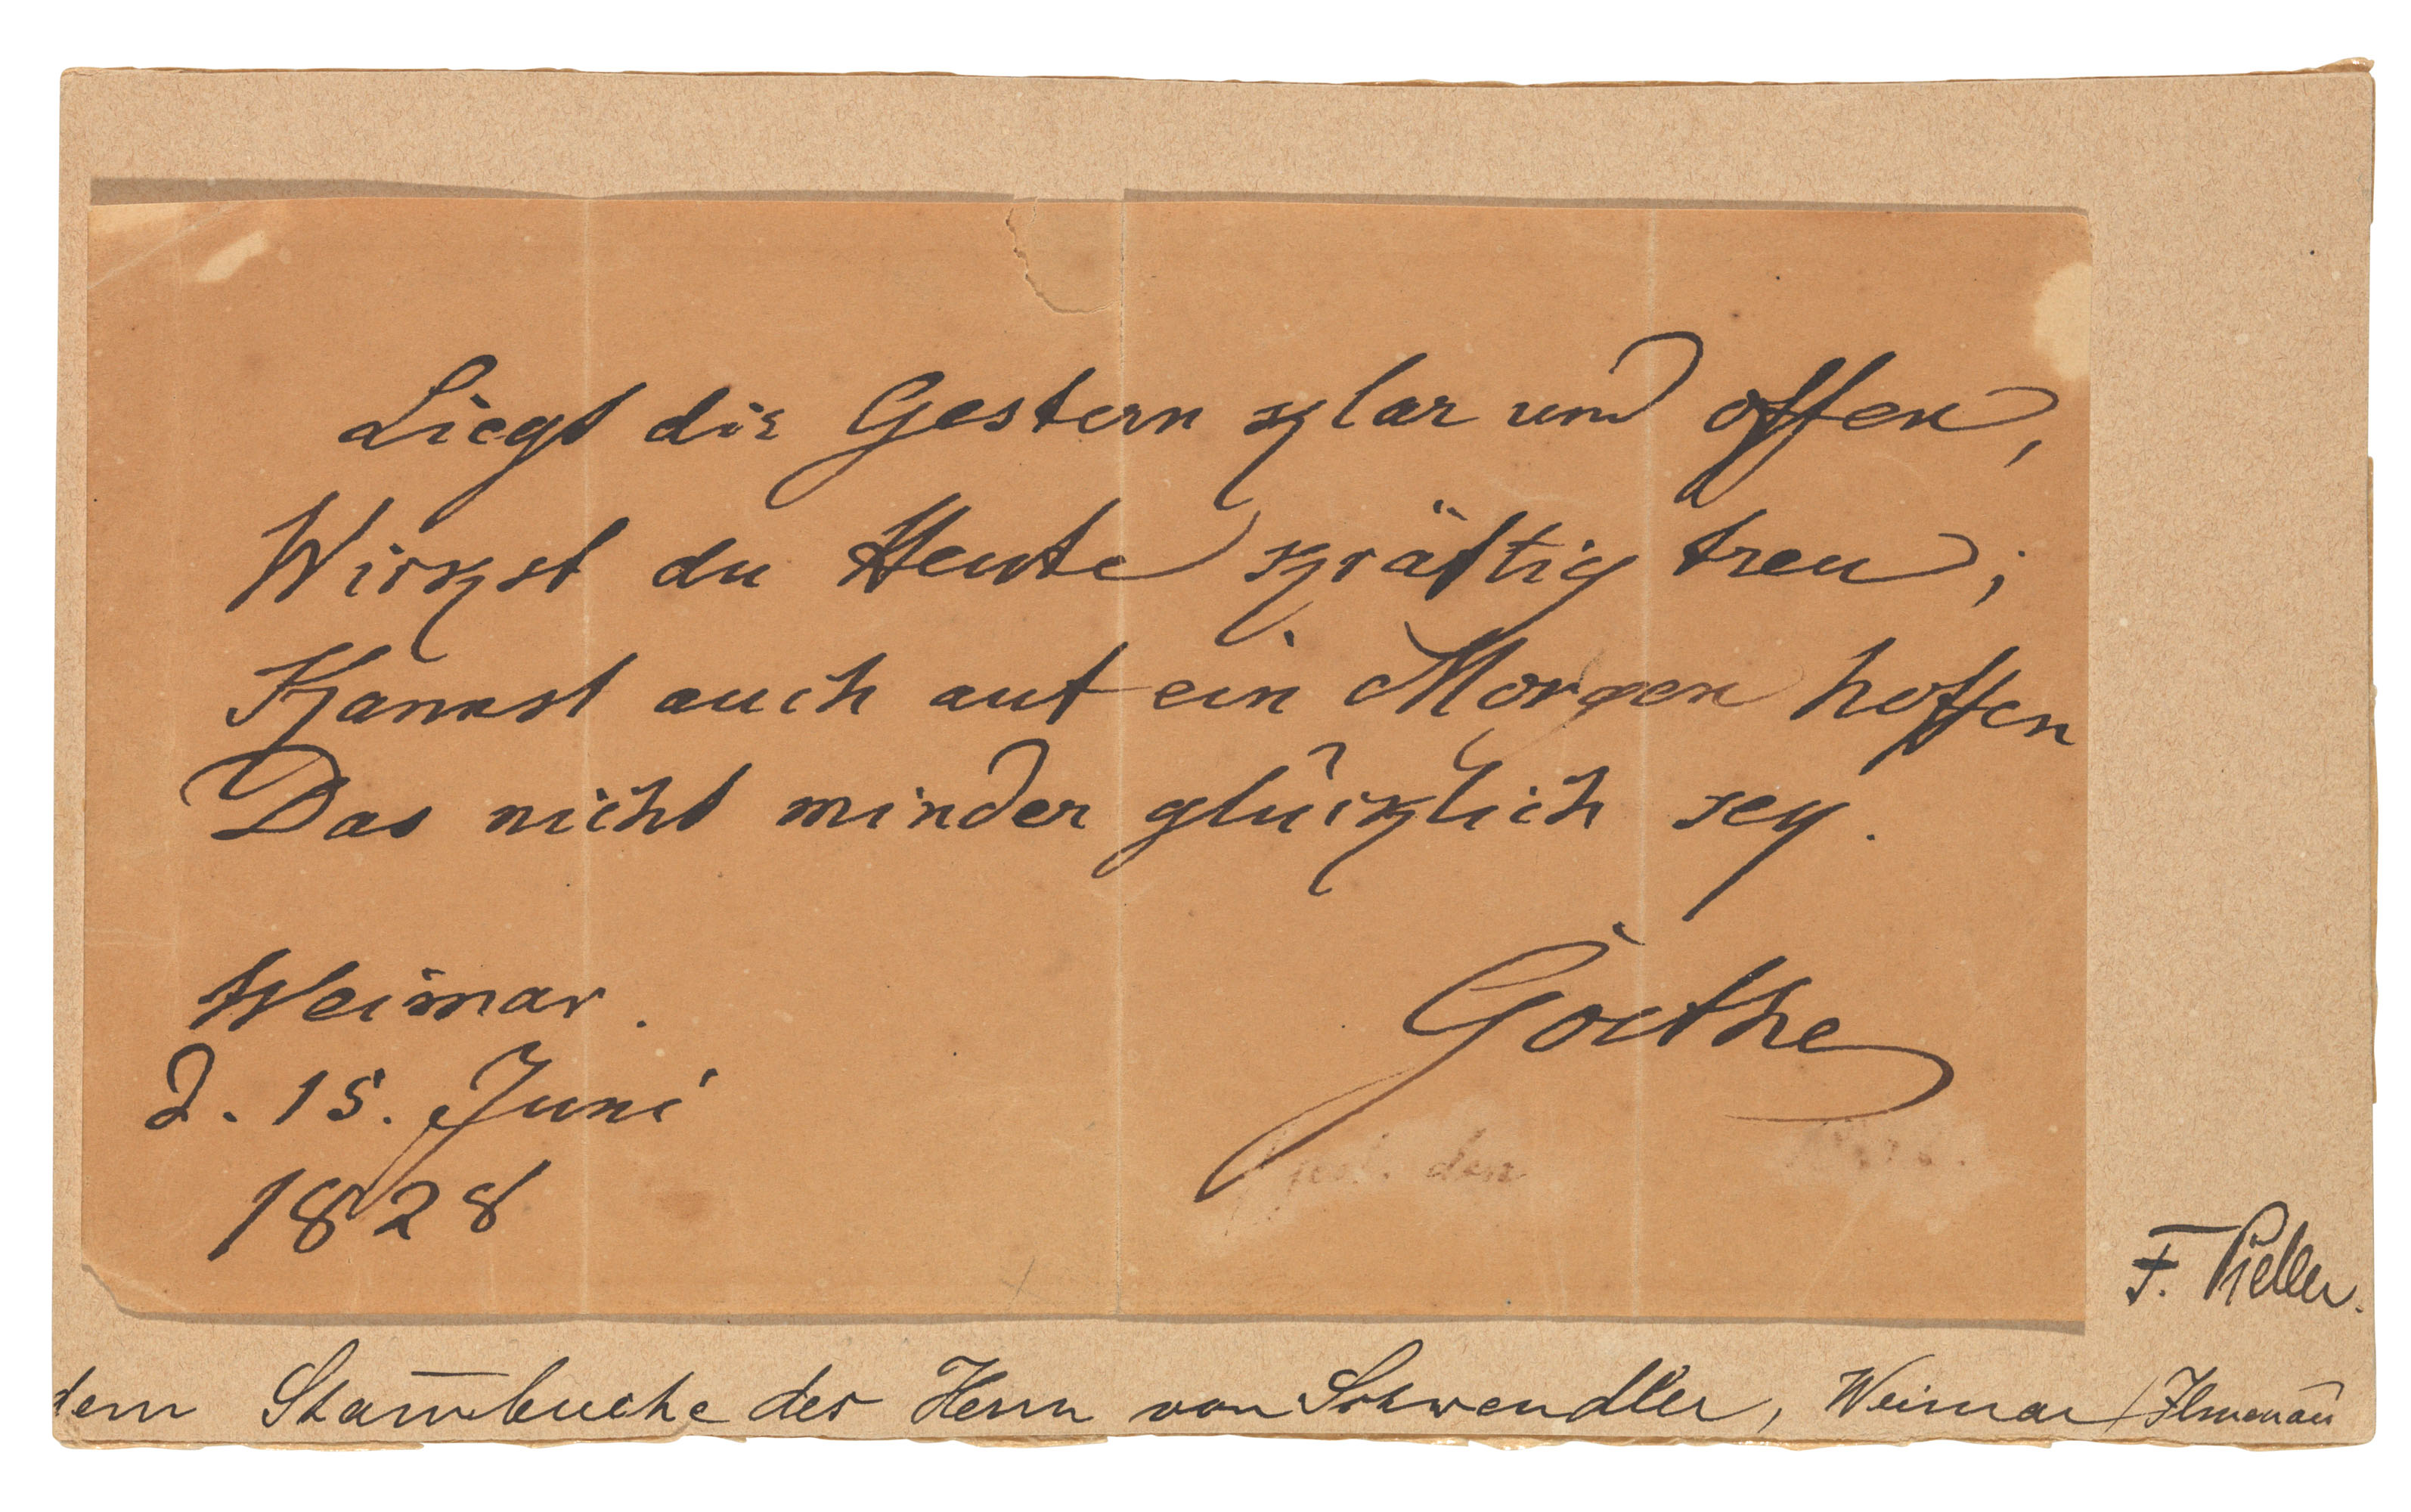 Liegt dir Gestern klar und offen,
Wirkst du Heute kräftig treu;
Kannst auch auf ein Morgen hoffen
Das nicht minder glücklich sey.
Weimar.
d. 15. Juni
1828
Goethe
den
F.
dem Stam̅buche des Herrn von Schwendler, Weimar / Ilmenau